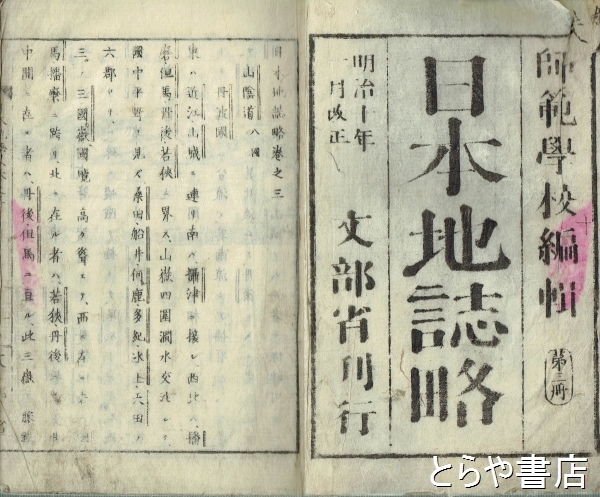 師範學校編輯
第三册
日本地誌略
明治十年
一月改正
文部省刊行
日本地誌略卷之三
山陰道 八國
丹波國
東ハ近江山城ニ連リ南ハ攝津ニ接シ西北ハ播
但馬丹後若狹ニ界ス、山嶽四圍澗水交流シ、
國中平野ヲ見ズ桑田船井何鹿多紀氷上天田ノ
六郡
三國嶽
高ク聳エ
馬播磨ニ跨リ北ニ在ル者ハ若狹丹後
中間ニ在ル者ハ丹後但馬ニ亘ル、此三嶽
とらや書店